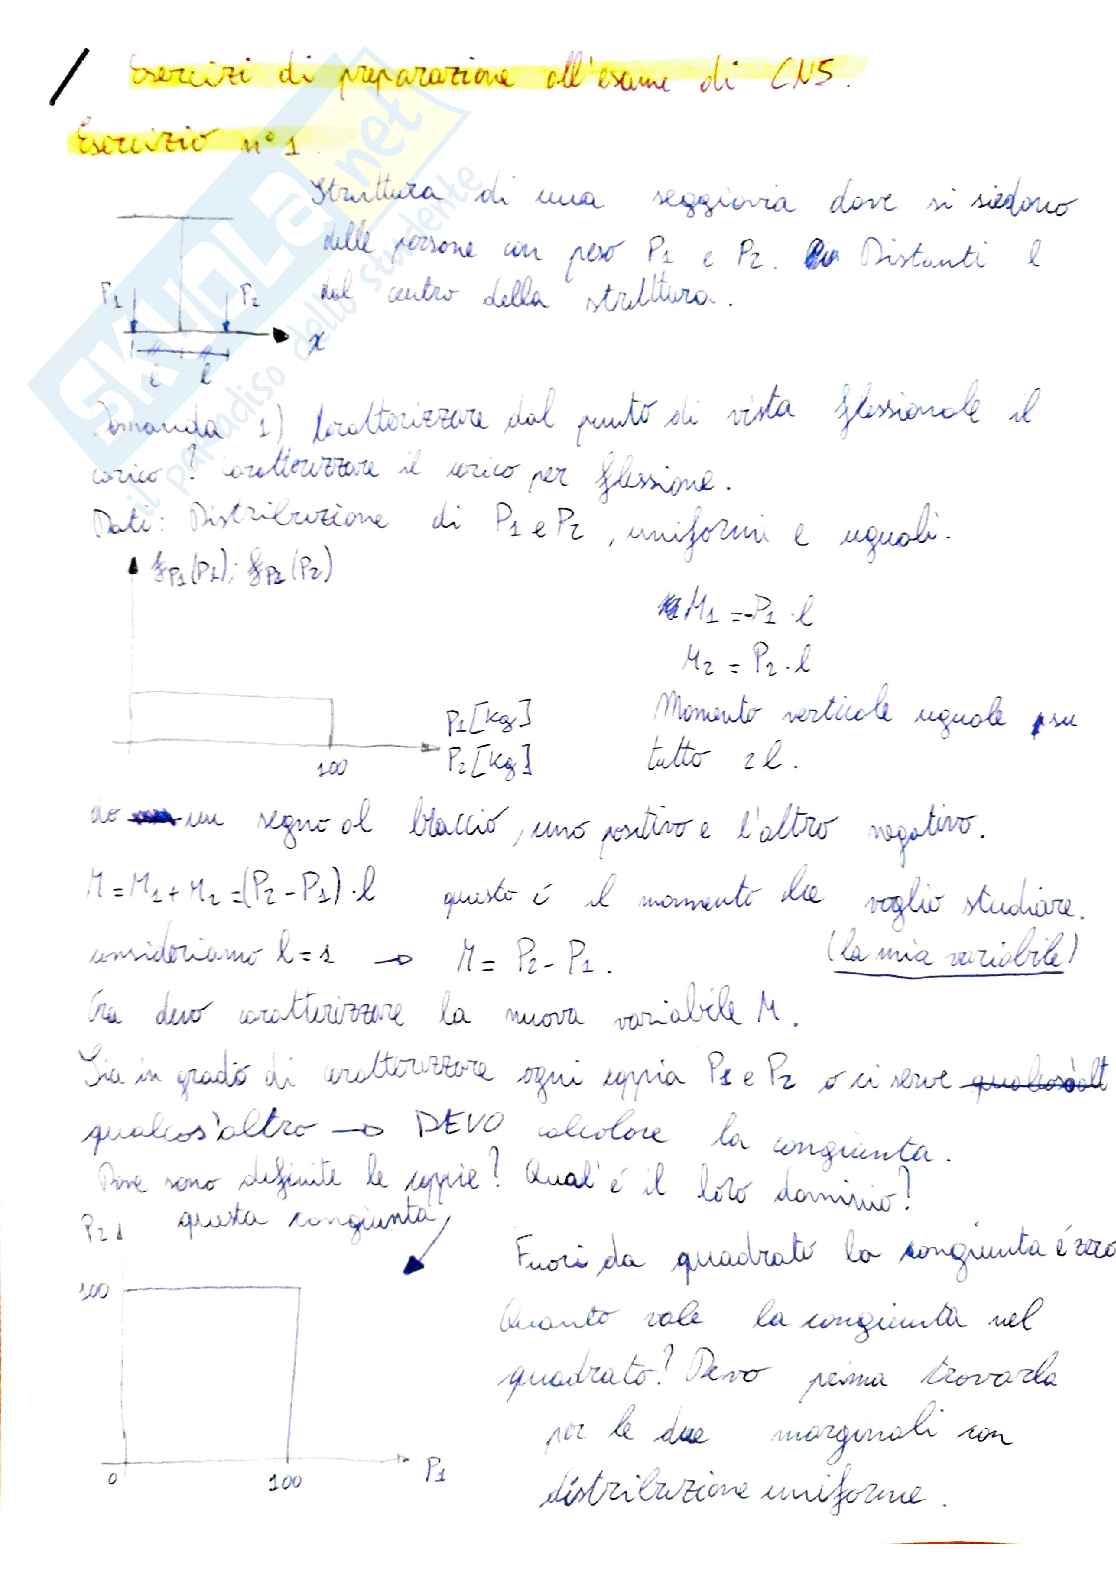 Esercizi di preparazione all'esame di CNS.
Esercizio n°1.
Struttura di una seggiovia dove si siedono
delle persone con peso P1 e P2. Distanti l
dal centro della struttura.
P1 P2
x
l l
Domanda 1) Caratterizzare dal punto di vista flessionale il
carico? caratterizzare il carico per flessione.
Dati: Distribuzione di P1 e P2, uniformi e uguali.
fP1(P1); fP2(P2)
M1 = -P1 · l
M2 = P2 · l
Momento verticale uguale su
tutto 2l.
P1 [kg]
P2 [kg]
100
do un segno al braccio, uno positivo e l'altro negativo.
M = M1 + M2 = (P2 - P1) · l questo é il momento che voglio studiare.
consideriamo l = 1 → M = P2 - P1. (la mia variabile)
Ora devo caratterizzare la nuova variabile M.
Sia in grado di caratterizzare ogni coppia P1 e P2 o ci serve qualcos'alt
qualcos'altro → DEVO calcolare la congiunta.
Dove sono definite le coppie? Qual'é il loro dominio?
questa congiunta
P2
100
0
100
P1
Fuori da quadrato la congiunta é zero
Quanto vale la congiunta nel
quadrato? Devo prima trovarla
per le due marginali con
distribuzione uniforme.
SKUOLA.net
il paradiso dello studente